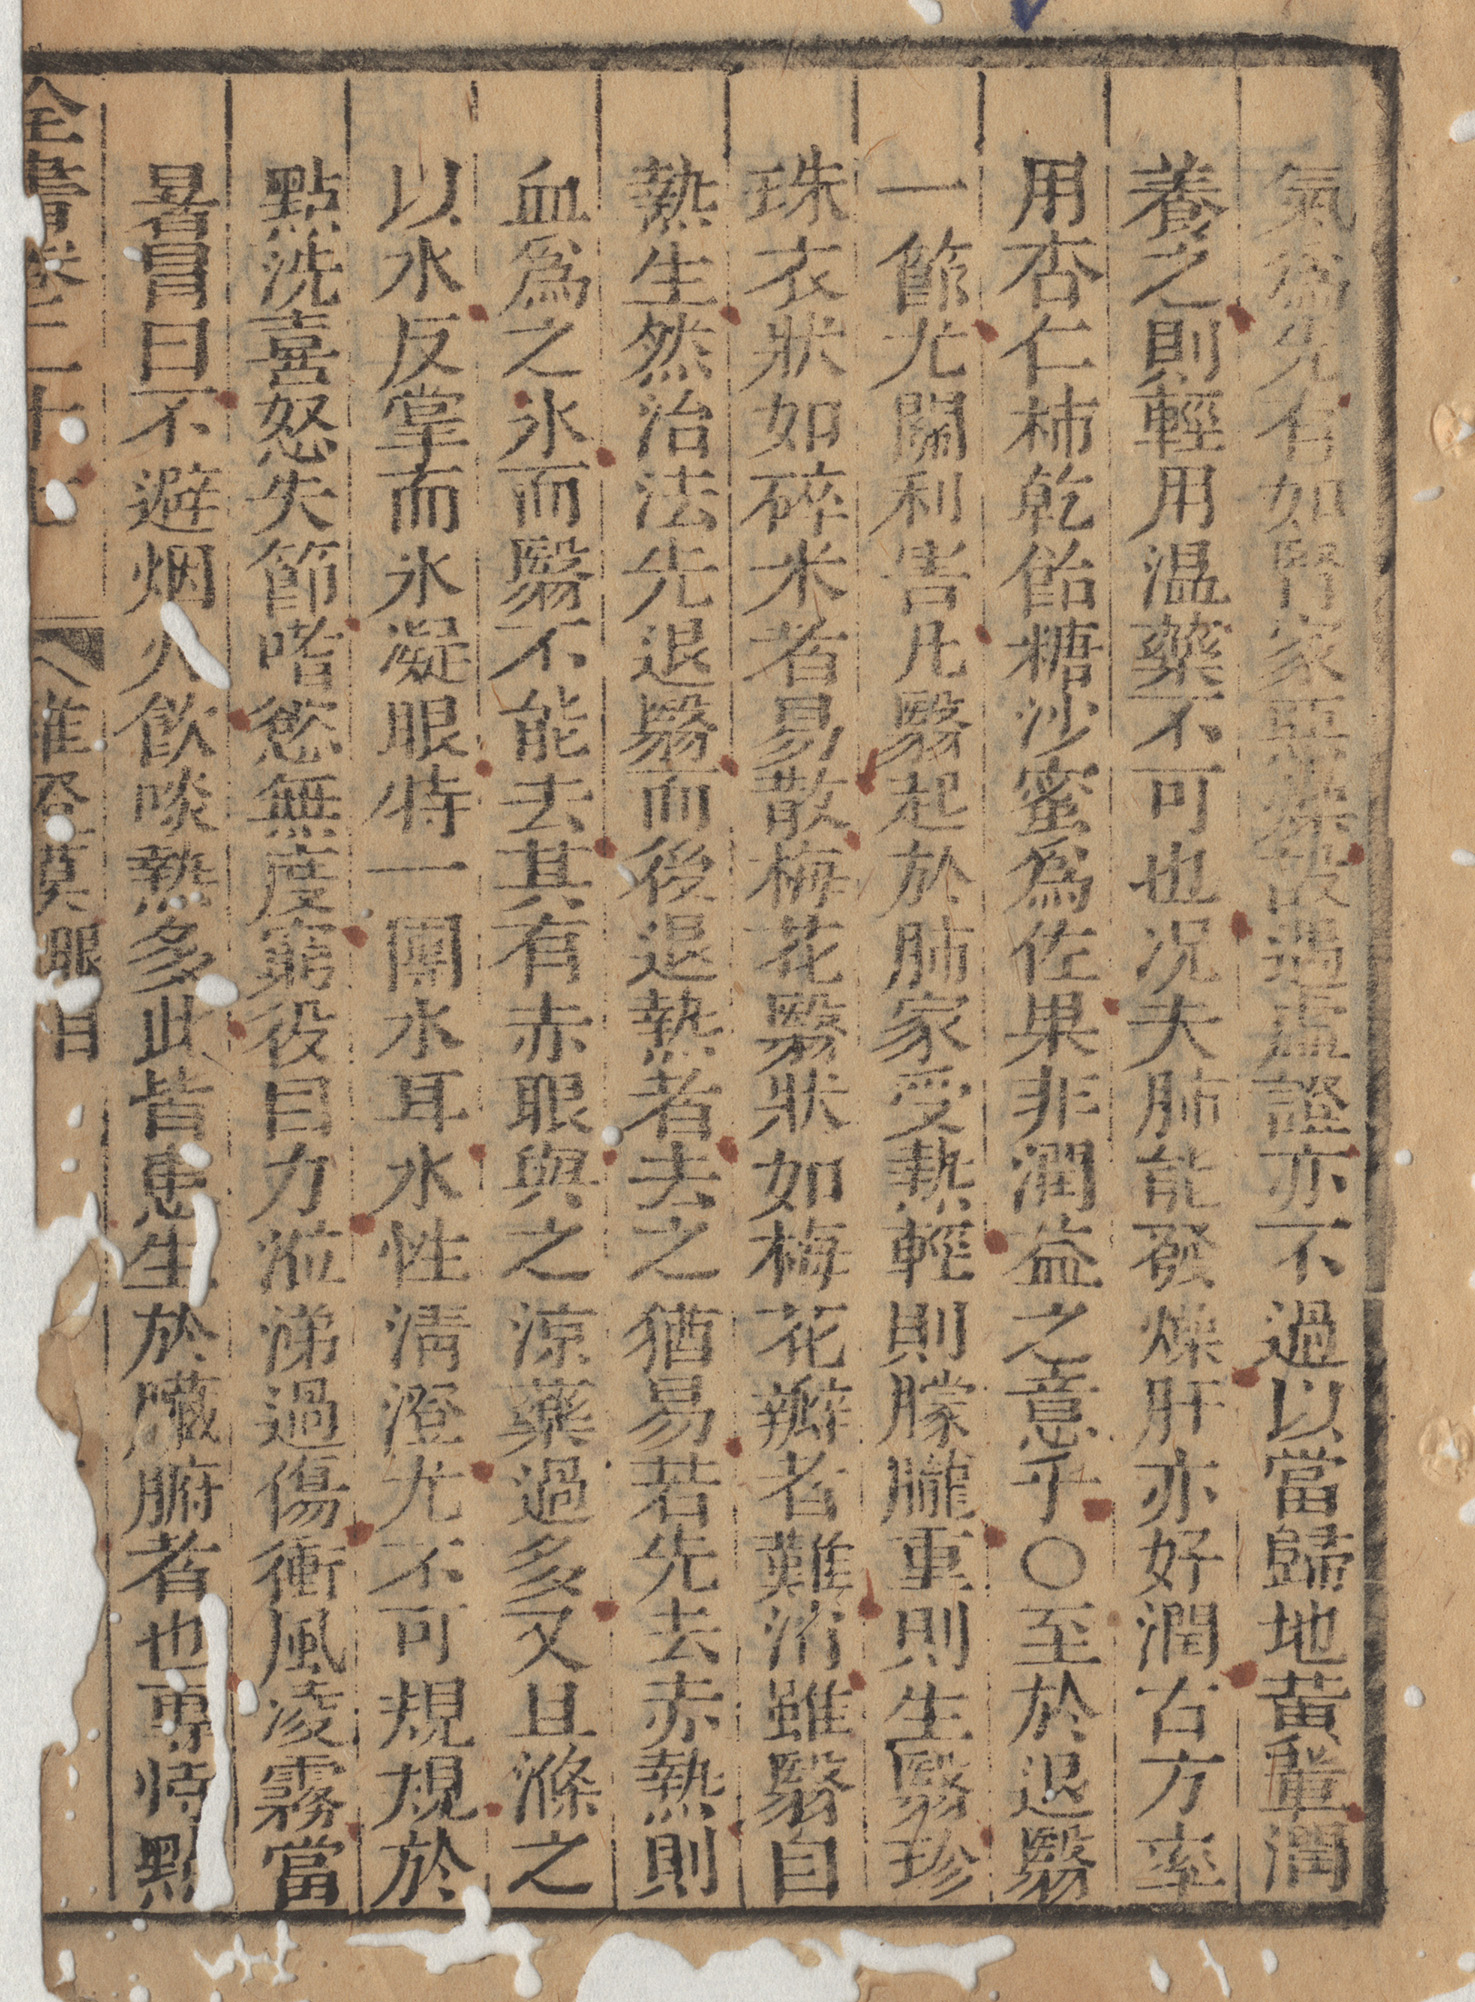 氣爲先有如腎家惡燥設遇虛證亦不過以當歸地黃軰潤
養之則輕用温藥不可也况夫肺能發燥肝亦好潤古方率
用杏仁柿乾飴糖沙蜜爲佐果非潤益之意乎〇至於退翳
一節尤關利害凡翳起於肺家受熱輕則朦朧重則生翳珍
珠衣狀如碎米者易散梅花翳狀如梅花瓣者難消雖翳自
熱生然治法先退翳而後退熱者去之猶易若先去赤熱則
血爲之氷而翳不能去其有赤眼與之涼藥過多又且滌之
以水反掌而氷凝眼特一團水耳水性淸澄尤不可規規於
點洗喜怒失節嗜慾無度窮役目力泣涕過傷衝風凌霧當
暑冒日不避烟火飲啖熱多此皆患生於臟腑者也專恃點
全書卷二十 眼目